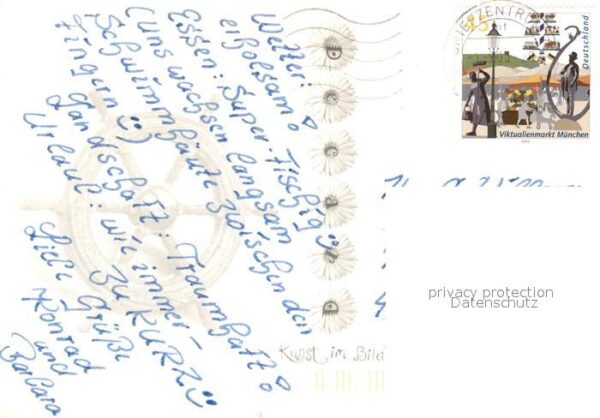 Wetter:
erholsam!
Essen: Super-Fischig
(uns wachsen langsam
Schwimmhäute zwischen den
Fingern)
Landschaft: Traumhaft!
Urlaub: wie immer -
zu KURZ
Liebe Grüße
Konrad
und
Barbara
Kunst im Bild
BRIEFZENTRUM
45
Deutschland
Viktualienmarkt München
privacy protection
Datenschutz